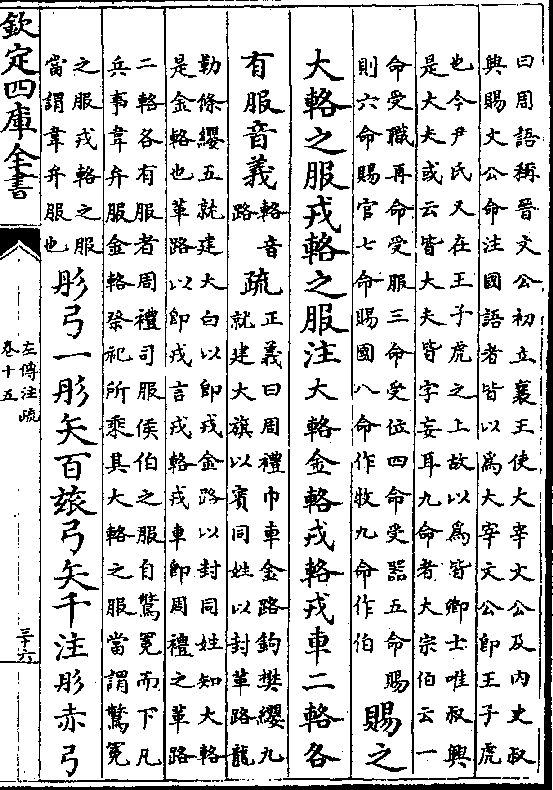 曰周語稱晉文公初立襄王使大宰文公及内史叔
興賜文公命注國語者皆以爲大宰文公即王子虎
也今尹氏又在王子虎之上故以爲皆卿士唯叔興
是大夫或云皆大夫皆字妄耳九命者大宗伯云一
命受職再命受服三命受位四命受器五命賜
則六命賜官七命賜國八命作牧九命作伯
賜之
大輅之服戎輅之服注大輅金輅戎輅戎車二輅各
有服音義
輅音
路
疏
正義曰周禮巾車金路鉤樊纓九
就建大旗以賓同姓以封革路龍
勒條纓五就建大白以即戎金路以封同姓知大輅
是金輅也革路以即戎言戎輅戎車即周禮之革路
二輅各有服者周禮司服侯伯之服自鷩冕而下凡
兵事韋弁服金輅祭祀所乘其大輅之服當謂鷩冕
之服戎輅之服
當謂韋弁服也
彤弓一彤矢百玈弓矢千注彤赤弓
欽定四庫全書
左傳注疏
卷十五
三十六